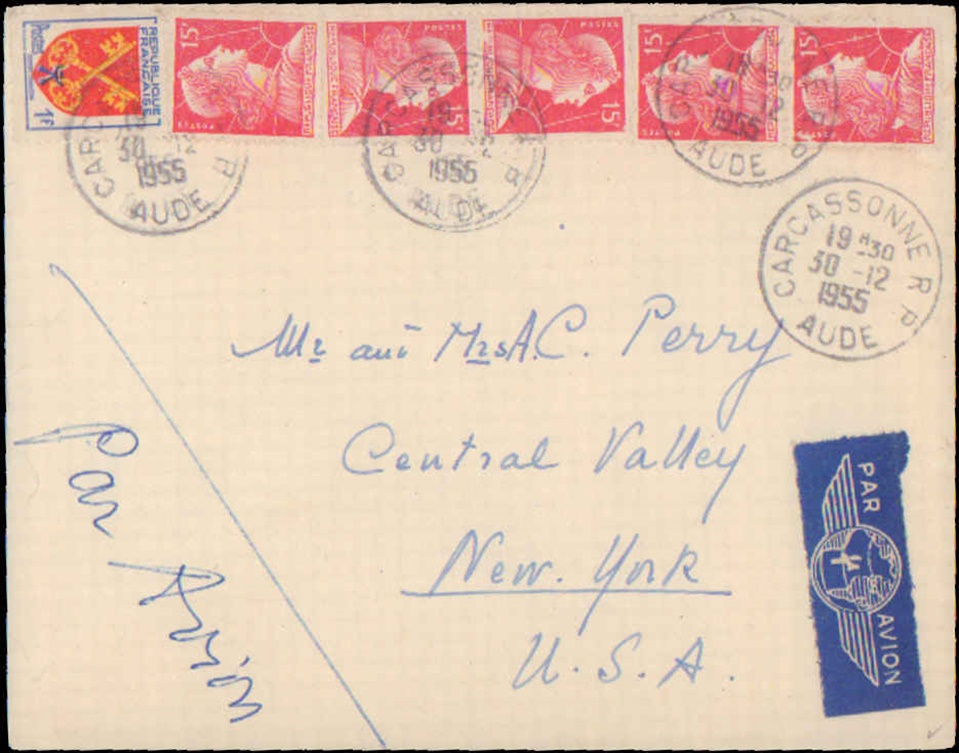 REPUBLIQUE FRANÇAISE
1F
15F
15F POSTES
15F POSTES
15F
15F
CARCASSONNE R P
30 -12
1955
AUDE
CARCASSONNE R P
19
30 -12
1955
AUDE
CARCASSONNE R P
19H30
30 -12
1955
AUDE
CARCASSONNE R P
19H30
30 -12
1955
AUDE
Mr and Mrs A.C. Perry
Central Valley
New. York
U.S.A.
Par Avion
PAR AVION